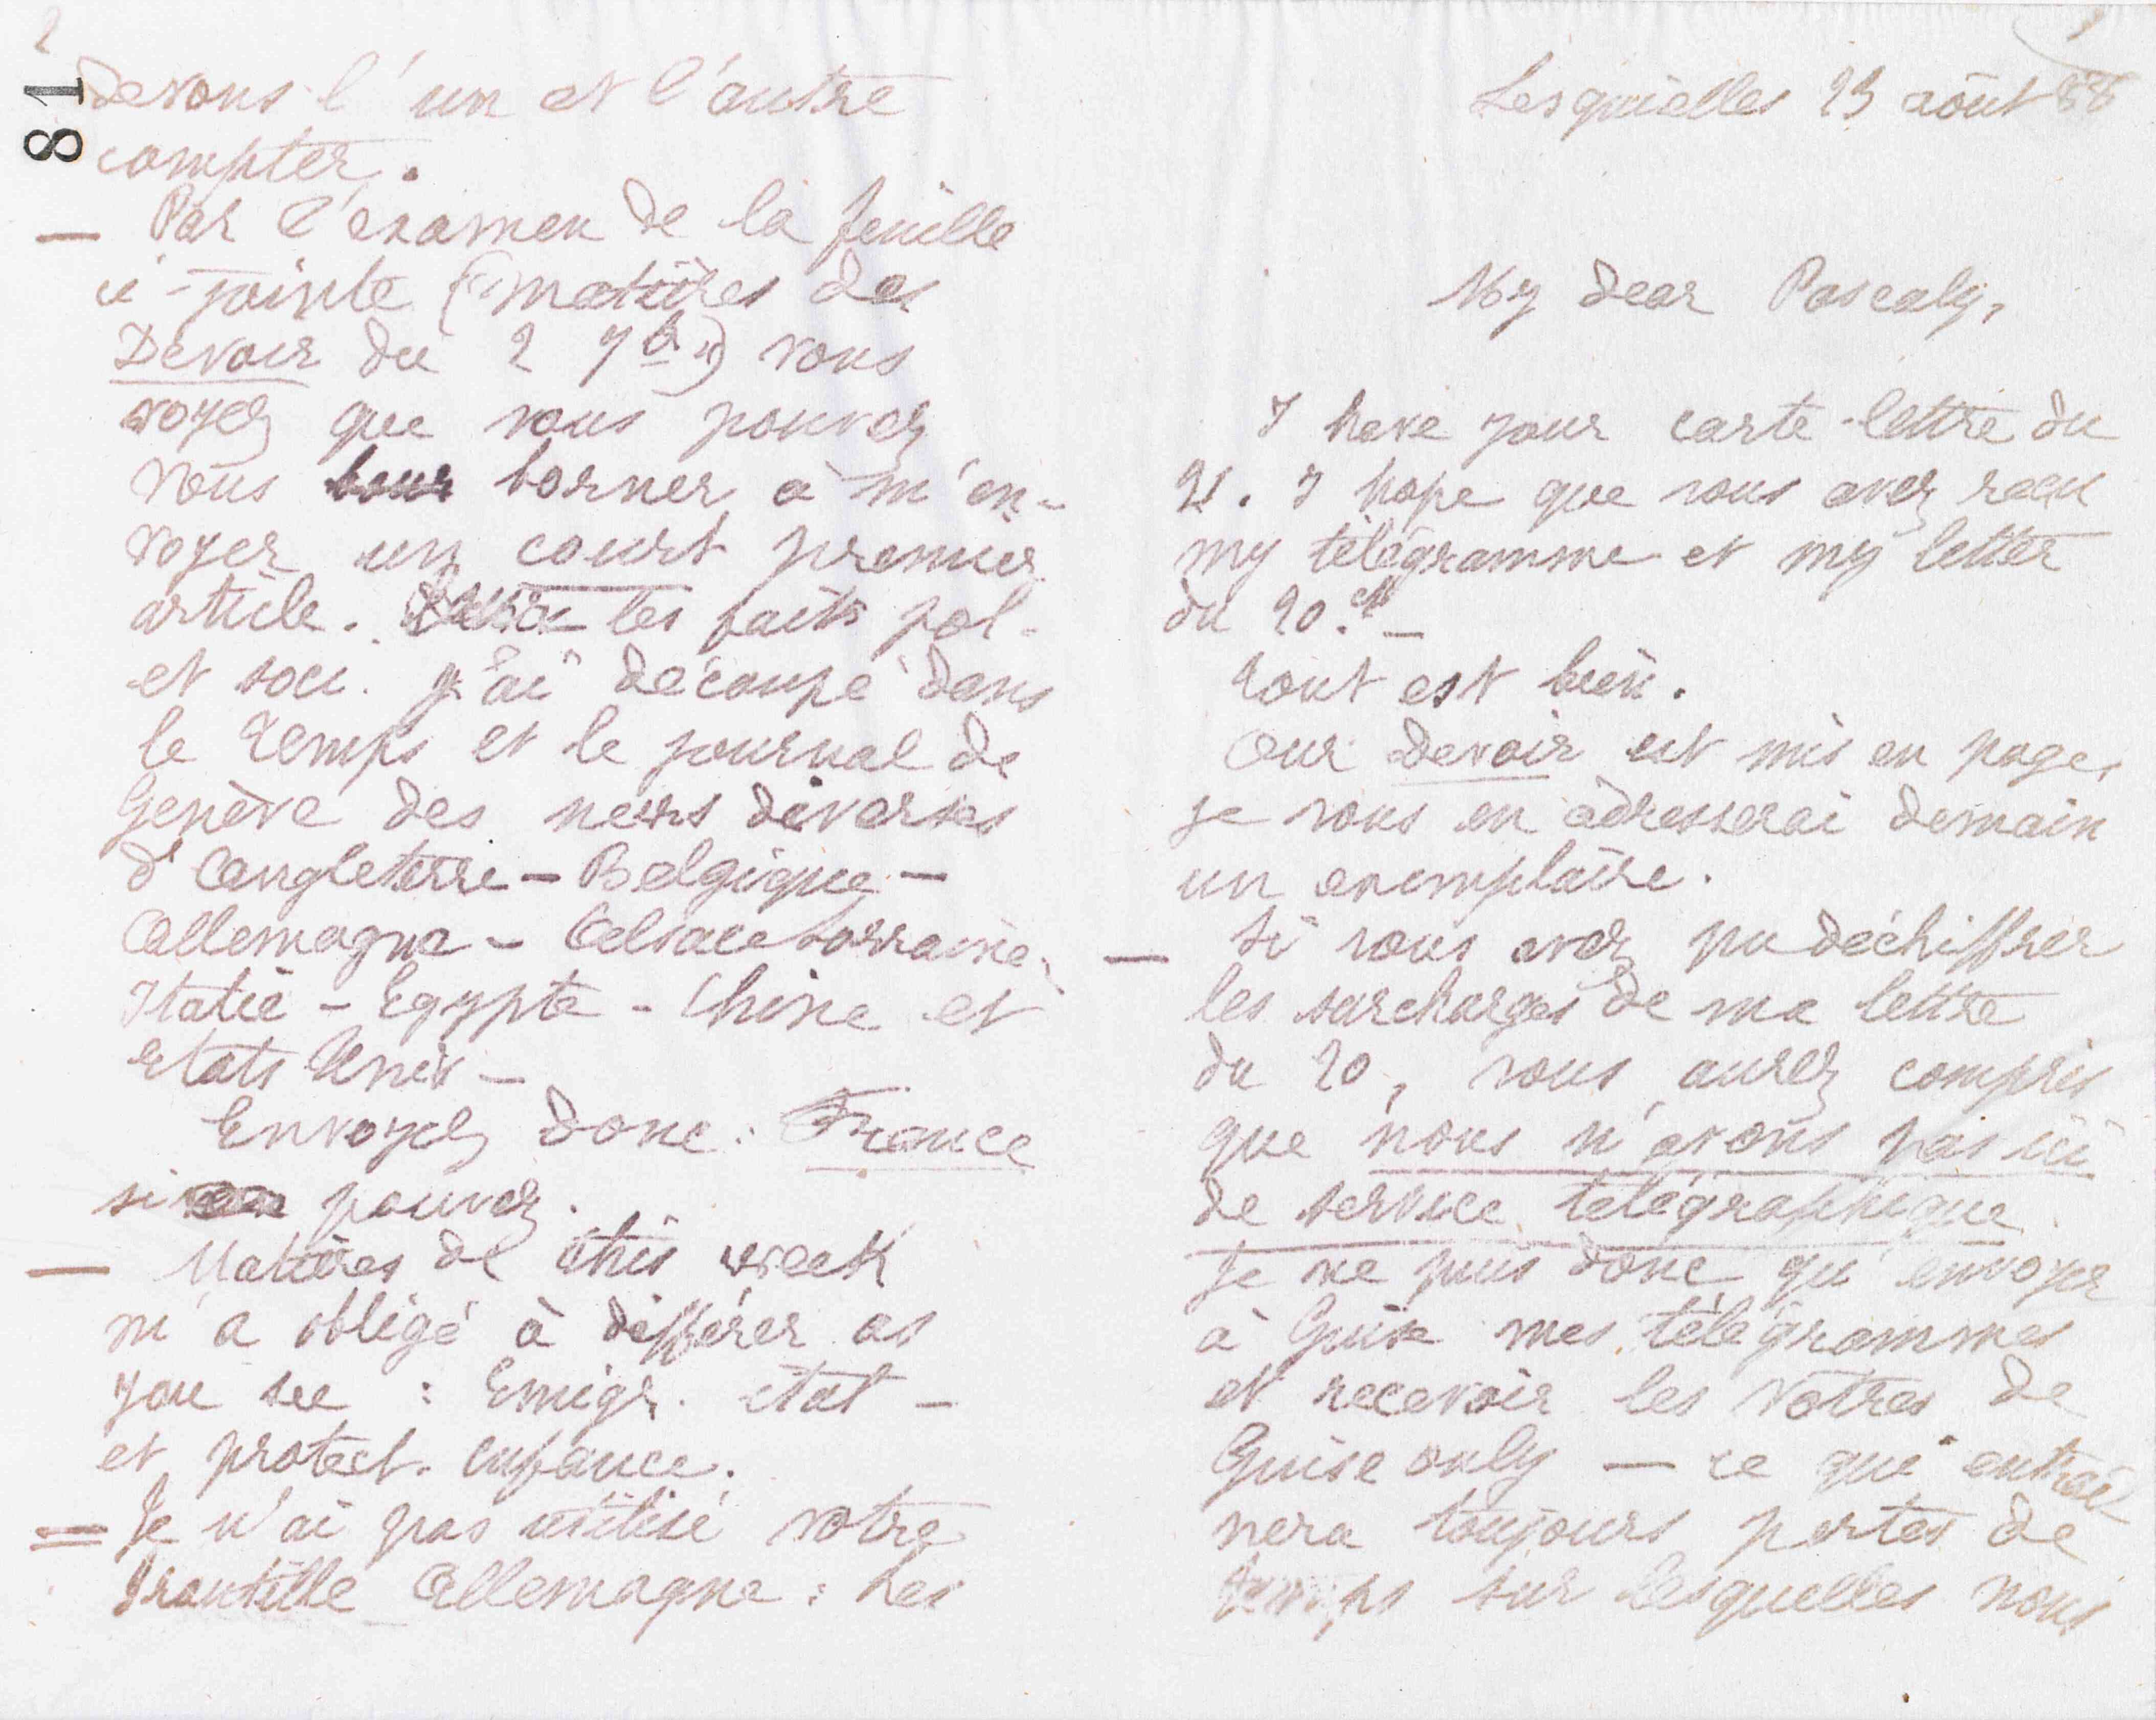 1
Lesquielles 23 août 88
My dear Pascaly,
I have your carte-lettre du
21. I hope que vous avez recu
my télégramme et my letter
du 20. ct _
Tout est bien.
Our Devoir est mis en page,
je vous en adresserai demain
un exemplaire.
— Si vous avez pu déchiffrer
les surcharges de ma lettre
du 20, vous aurez compris
que nous n'avons pas ici
de service télégraphique
Je ne puis donc qu'envoyer
à Guise mes télégrammes
et recevoir les vôtres de
Guise only — ce qui entraî-
nera toujours pertes de
temps sur lesquelles nous
2
81
devons l'un et l'autre
compter.
— Par l'examen de la feuille
ci-jointe ("matières des
Devoir du 2 7bre") vous
voyez que vous pouvez
vous borner à m'en-
voyer un court premier
article. les faits pol.
et soci. J'ai découpé dans
le Temps et le journal de
Genève des news diverses
d'Angleterre — Belgique —
Allemagne — Alsace Lorraine.
Italie — Egypte — Chine et
Etats Unis —
Envoyez donc : France
si pouvez.
— Matières de this week
m'a obligé à différer as
you see : Emigr. ital —
et protect. enfance.
= Je n'ai pas utilisé votre
Allemagne : Les